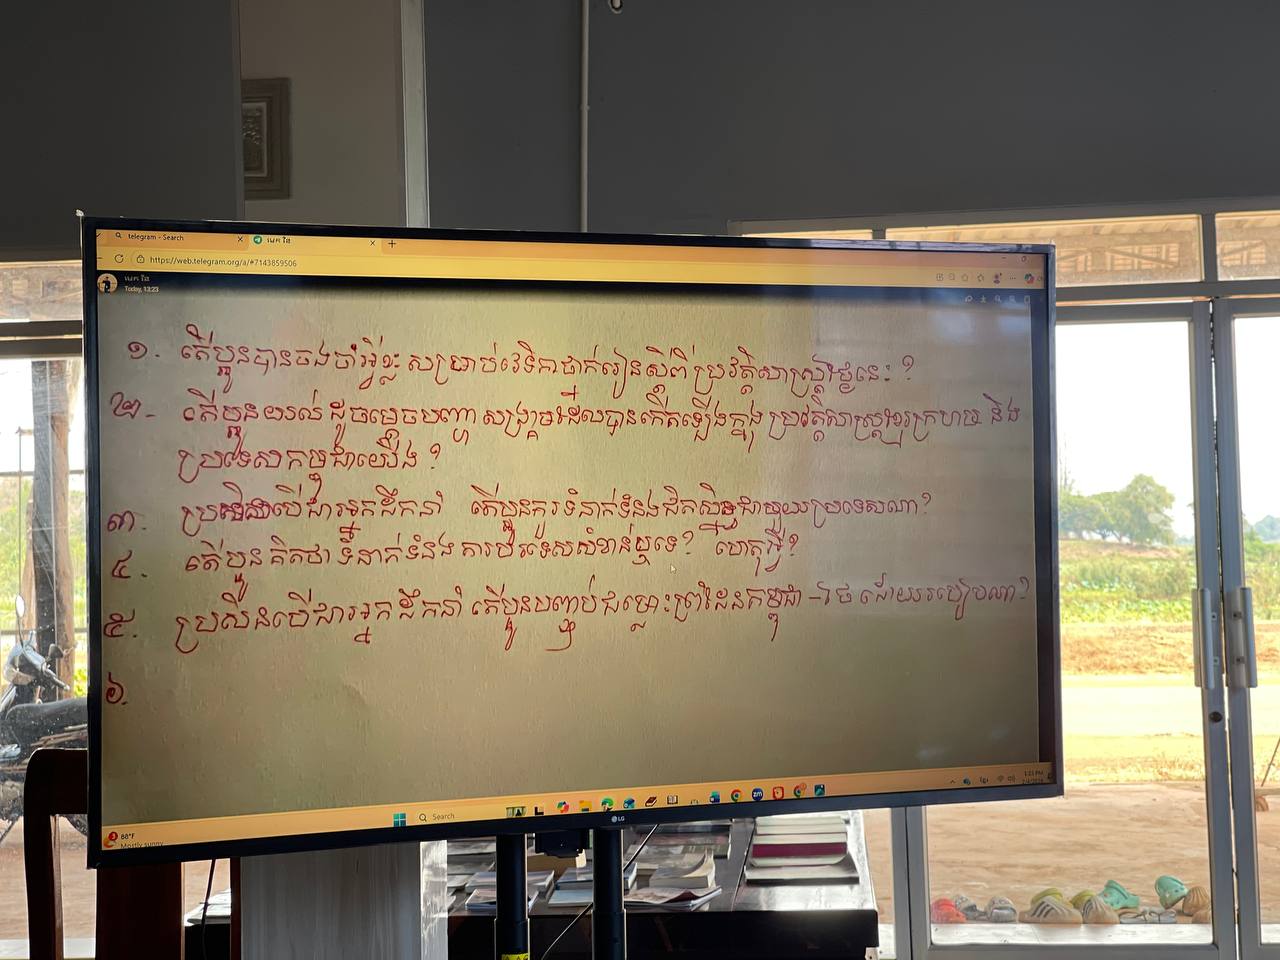 telegram - Search
https://web.telegram.org/a/#7143859506
Today, 13:23
១. តើប្អូនបានចងចាំអ្វីខ្លះ សម្រាប់វេទិកាថ្នាក់រៀនស្ដីពី ប្រវត្តិសាស្ត្រថ្ងៃនេះ ?
២. តើប្អូនយល់ដូចម្ដេចបញ្ហា សង្គ្រាមដែលបានកើតឡើងក្នុង ប្រវត្តិសាស្ត្រខ្មែរក្រហម និង
ប្រទេសកម្ពុជាយើង ?
៣. ប្រសិនបើជាអ្នកដឹកនាំ តើប្អូនគួរទំនាក់ទំនងជិតស្និទ្ធជាមួយប្រទេសណា?
៤. តើប្អូន គិតថា ទំនាក់ទំនង ការបរទេសសំខាន់ឬទេ? ហេតុអ្វី?
៥. ប្រសិនបើជាអ្នកដឹកនាំ តើប្អូនបញ្ចប់ជម្លោះព្រំដែនកម្ពុជា - ថៃ ដោយរបៀបណា?
៦.
88°F
Mostly sunny
Search
1:23 PM
LG